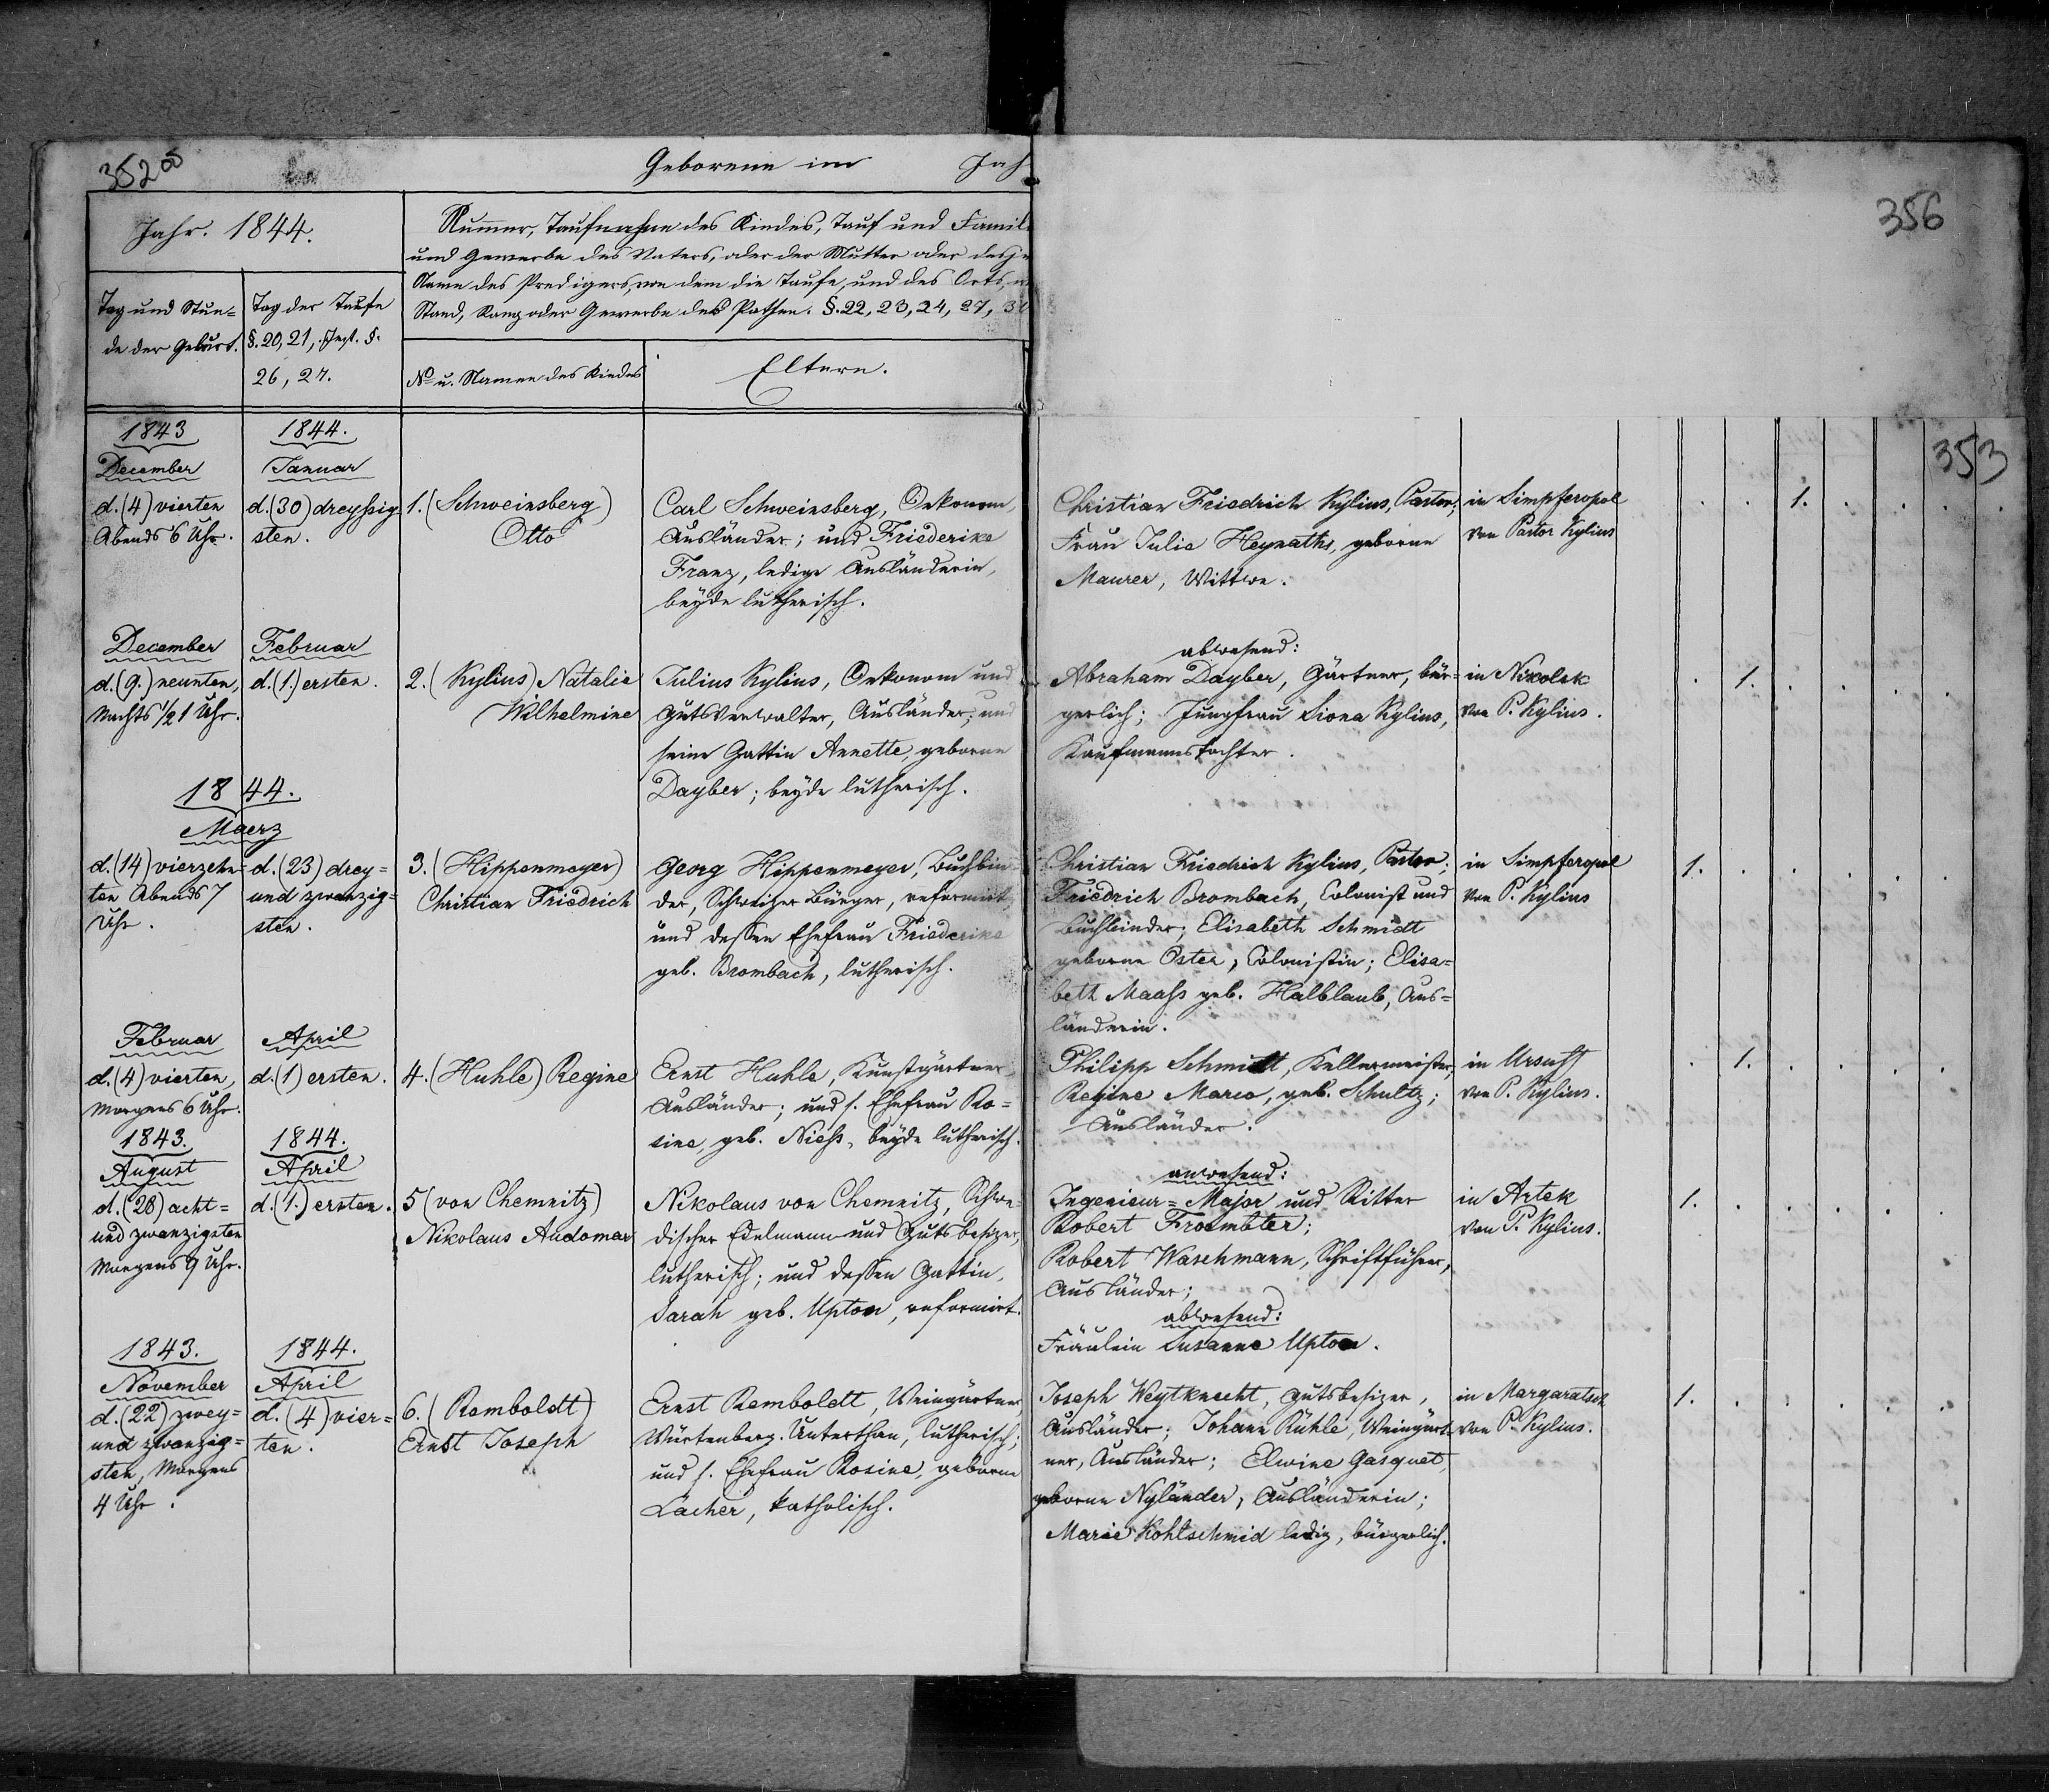 352 os
Geborene im Jah
356
Jahr. 1844.
Nummer, Taufnahme des Kindes, Tauf und Famil
und Gewerbe des Vaters, oder der Mutter oder desje
Name des Predigers, von dem die Taufe, und des Orts, w
Stand, Rang oder Gewerbe des Pathen. §. 22, 23, 24, 27, 3
Tag und Stun=
de der Geburt.
Tag der Taufe
§. 20, 21, §.
26, 27.
No u. Namen des Kindes
Eltern.
353
1843
December
d. (4) vierten
Abends 6 Uhr.
1844.
Januar
d. (30) dreyßig
sten.
1. (Schweinsberg)
Otto
Carl Schweinsberg, Oekonom,
Ausländer; und Friederike
Franz, ledige Ausländerin,
beyde lutherisch.
Christian Friedrich Kylius, Pastor;
Frau Julie Heynaths, geborne
Maurer, Wittwe.
in Simpferopol
von Pastor Kylius
1.
December
d. (9.) neunten,
Nachts 1/2 1 Uhr.
Februar
d. (1.) ersten.
2. (Kylius) Natalie
Wilhelmine
Julius Kylius, Oekonom und
Gutsverwalter, Ausländer; und
seine Gattin Annette, geborne
Dayber; beyde lutherisch.
abwesend:
Abraham Dayber, Gärtner, bür=
gerlich; Jungfrau Liona Kylius,
Kaufmannstochter.
in Nikolsk
von P. Kylius.
1.
1844.
Maerz
d. (14) vierzehn=
ten Abends 7
Uhr.
d. (23) drey=
und zwanzig=
sten.
3. (Hippenmeyer)
Christian Friedrich
Georg Hippenmeyer, Buchbin=
der, Schweizer Bürger, reformirt,
und dessen Ehefrau Friederike
geb. Brombach, lutherisch.
Christian Friedrich Kylius, Pastor;
Friedrich Brombach, Colonist und
Buchbinder; Elisabeth Schmidt
geborne Oster, Colonistin; Elisa=
beth Maaß geb. Halblaub, Aus=
länderin.
in Simpferopol
von P. Kylius
1.
Februar
d. (4) vierten,
Morgens 6 Uhr.
April
d. (1) ersten.
4. (Huhle) Regine
Ernst Huhle, Kunstgärtner,
Ausländer; und s. Ehefrau Ro=
sine, geb. Nieß, beyde lutherisch.
Philipp Schmidt, Kellermeister,
Regine Marco, geb. Schultz;
Ausländer.
in Ursuff
von P. Kylius.
1.
1843.
August
d. (28) acht=
und zwanzigsten
Morgens 9 Uhr.
1844.
April
d. (1.) ersten.
5 (von Chemnitz)
Nikolaus Audomar
Nikolaus von Chemnitz, Schwe=
discher Edelmann und Gutsbesizer,
lutherisch; und dessen Gattin,
Sarah geb. Upton, reformirt.
anwesend:
Ingenieur=Major und Ritter
Robert Froembter;
Robert Waschmann, Schriftführer,
Ausländer;
abwesend:
Fräulein Susanne Upton.
in Artek
von P. Kylius.
1.
1843.
November
d. (22) zwey=
und zwanzig=
sten, Morgens
4 Uhr.
1844.
April
d. (4) vier=
ten.
6. (Remboldt)
Ernst Joseph
Ernst Remboldt, Weingärtner
Würtenberg. Unterthan, lutherisch;
und s. Ehefrau Rosine, geborne
Lacher, katholisch.
Joseph Weytknecht, Gutsbesizer,
Ausländer; Johann Kühle, Weingärt=
ner, Ausländer; Elwine Gasquet,
geborne Nyländer, Ausländerin;
Marie Kohlschmid ledig, bürgerlich.
in Margaratsch
von P. Kylius.
1.